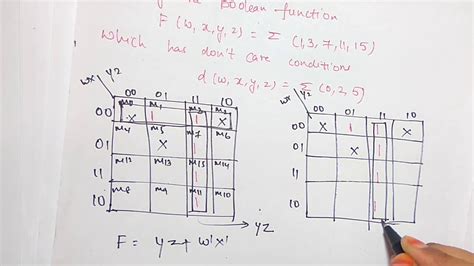 Boolean function
F (w, x, y, z) = Σ (1, 3, 7, 11, 15)
which has don't care conditions
d (w, x, y, z) = Σ (0, 2, 5)
wx yz 00 01 11 10
00 m0 X m1 1 m3 1 m2 X
01 m4 m5 X m7 1 m6
11 m12 m13 m15 1 m14
10 m8 m9 m11 1 m10
yz
F = yz + w'x'
wx yz 00 01 11 10
00 X 1 1 X
01 X 1
11 1
10 1